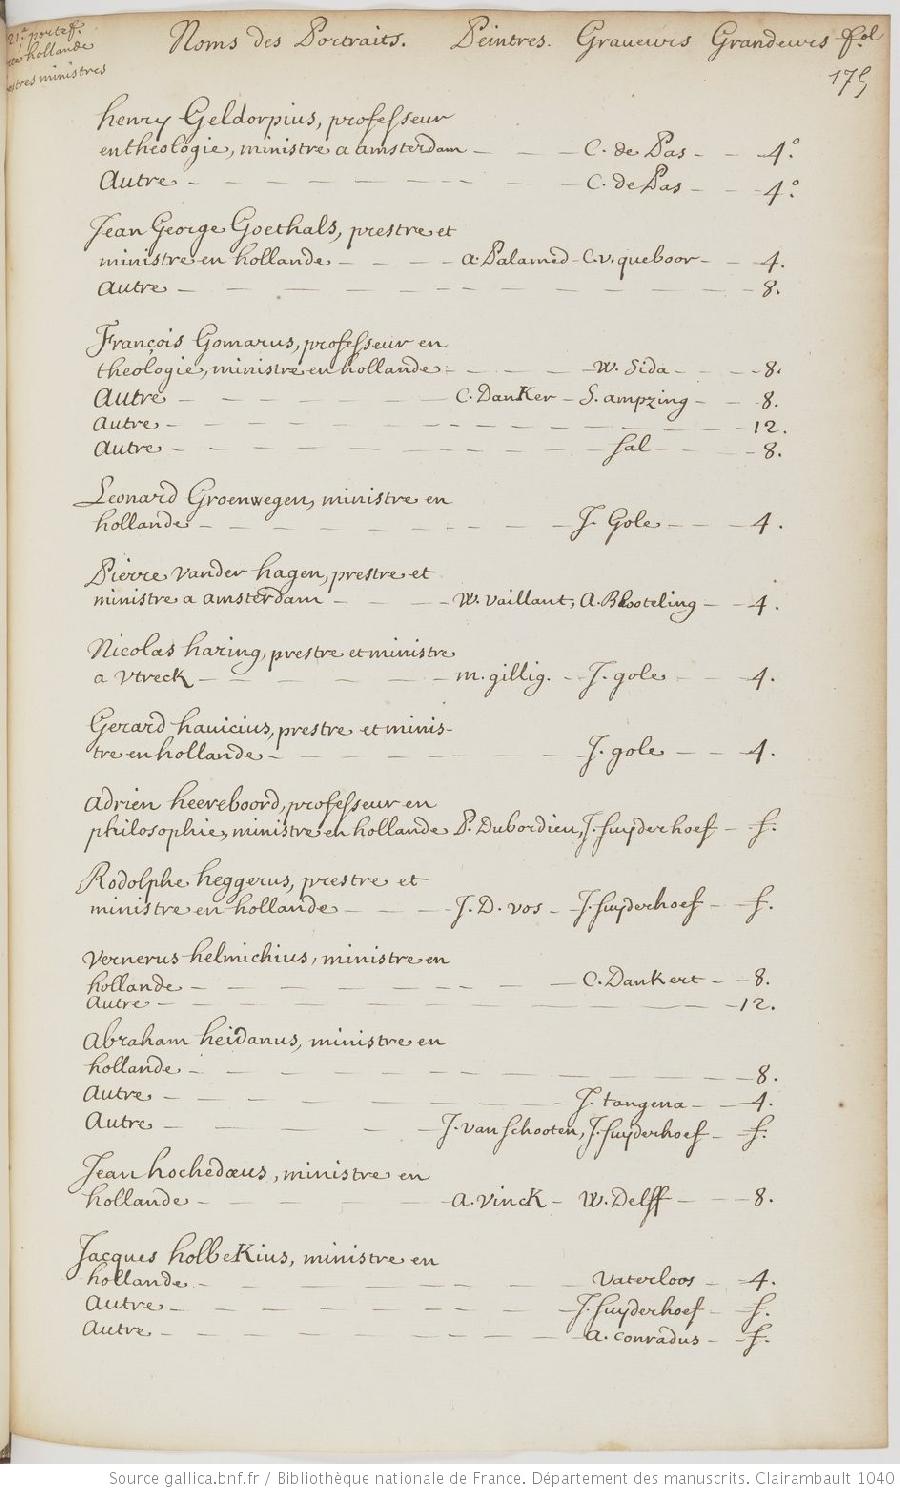 21.e portef.
hollande
prestres ministres
Noms des Portraits. Peintres. Graveurs Grandeurs fol
175
henry Geldorpius, professeur
en theologie, ministre a amsterdam — — — C. de Pas — — 4°.
Autre — — — — — — — C. de Pas — — 4°.
Jean George Goethals, prestre et
ministre en hollande — — — — a. Palamed — C. v. queboor — — 4.
Autre — — — — — — — — — 8.
François Gomarus, professeur en
theologie, ministre en hollande — — — — w. Sida — — 8.
Autre — — — — — C. Danker — S. ampzing — — 8.
Autre — — — — — — — — — 12.
Autre — — — — — — — sal — — 8.
Leonard Groenwegen, ministre en
hollande — — — — — — — J. Gole — — 4.
Pierre vander hagen, prestre et
ministre a amsterdam — — — — w. vaillant, A. Blooteling — — 4.
Nicolas haring, prestre et ministre
a Vtreck — — — — — m. gillig. — J. gole — — 4.
Gerard havicius, prestre et minis-
tre en hollande — — — — — — J. gole — — 4.
adrien heereboord, professeur en
philosophie, ministre en hollande P. Dubordieu, J. suyderhoef — f.
Rodolphe heggerus, prestre et
ministre en hollande — — — — J. D. vos — J. suyderhoef — f.
Vernerus helmichius, ministre en
hollande — — — — — — — C. Dankert — 8.
Autre — — — — — — — — — 12.
Abraham heidanus, ministre en
hollande — — — — — — — — — 8.
Autre — — — — — — — J. tangena — 4.
Autre — — — — — J. van schooten, J. suyderhoef — f.
Jean hochedæus, ministre en
hollande — — — — — a. vinck — W. Delff — — 8.
Jacques holbeKius, ministre en
hollande — — — — — — — vaterloos — 4.
Autre — — — — — — — J. suyderhoef — f.
Autre — — — — — — — a. conradus — f.
Source gallica.bnf.fr / Bibliothèque nationale de France. Département des manuscrits. Clairambault 1040